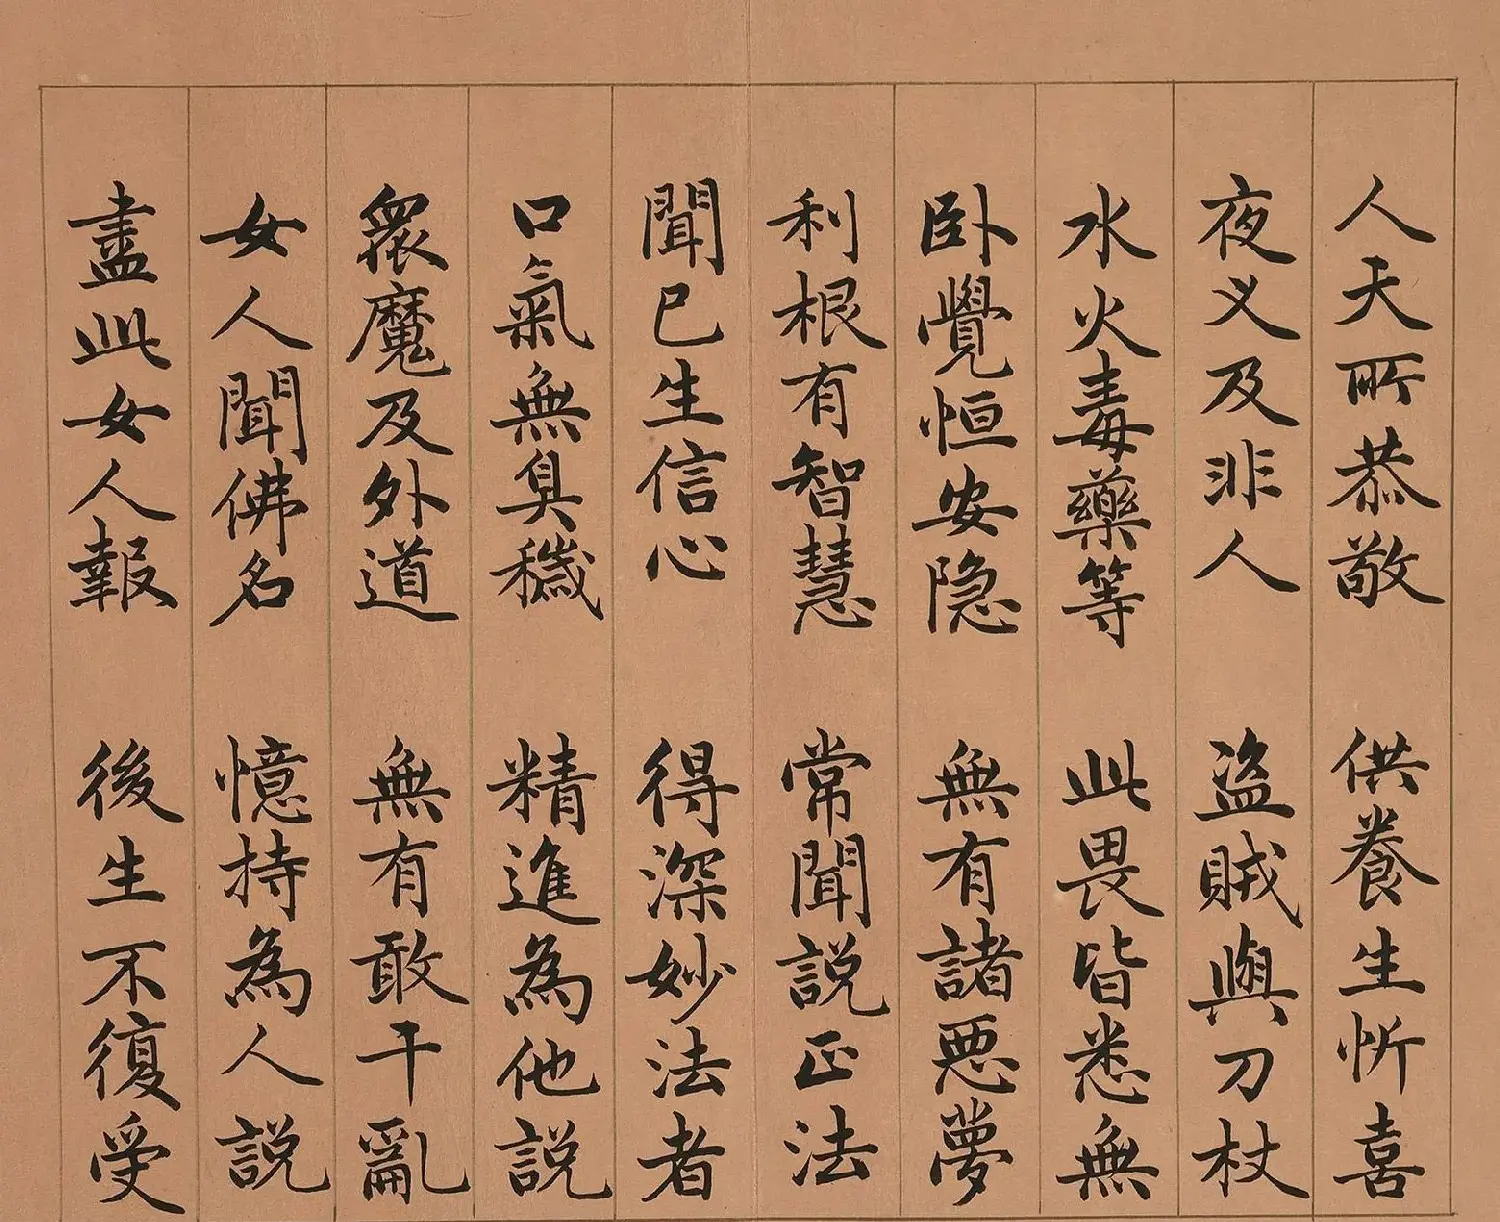 人天所恭敬 供養生忻喜
夜义及非人 盜賊與刀杖
水火毒藥等 此畏皆悉無
卧覺恒安隐 無有諸惡夢
利根有智慧 常聞說正法
聞已生信心 得深妙法者
口氣無臭穢 精進為他說
眾魔及外道 無有敢干亂
女人聞佛名 憶持為人說
盡此女人報 後生不復受